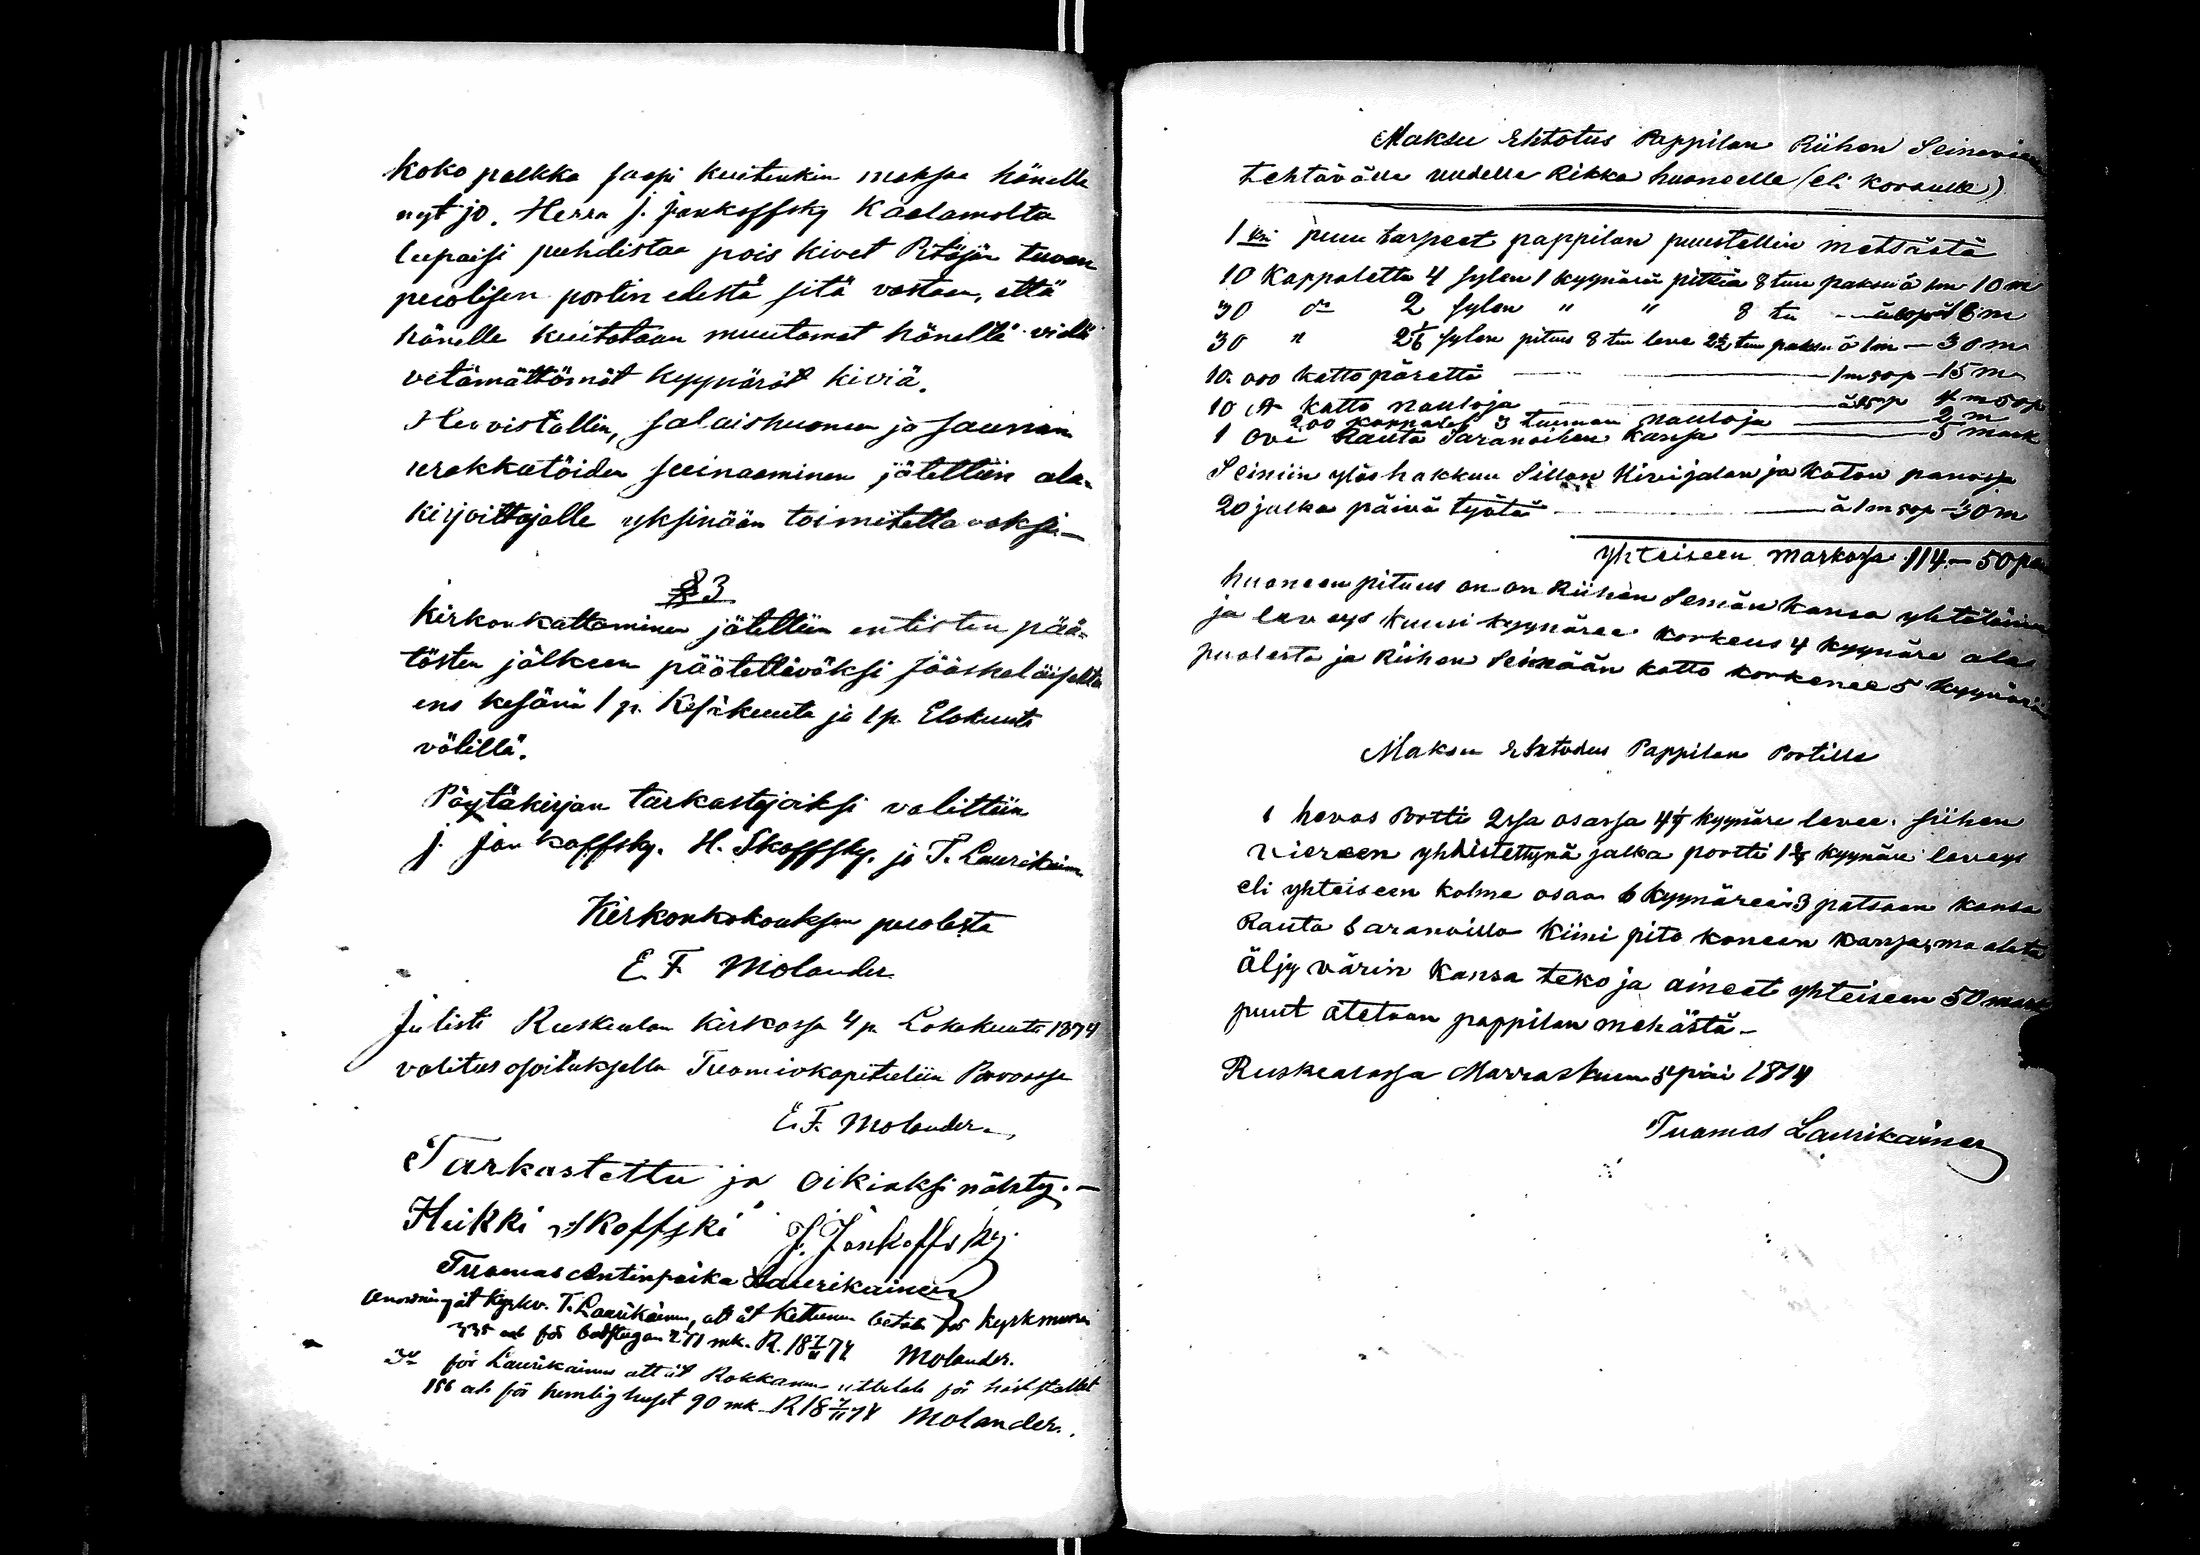 koko palkka saapi kuitenkin maksaa hänelle
nyt jo. Herra J. Jankoffsky Kaalamolta
lupaisi puhdistaa pois kivet Pitäjän tuvan
puolisen portin edestä sitä vastaan, että
hänelle kuitataan muutamat häneltä vielä
vetämättömät kyynärät kiviä.
Hevostallin, salaishuoneen ja saunan
urakkatöiden seinaaminen jätettiin ala-
kirjoittajalle yksinään toimitettavaksi.—
§ 3
Kirkon kattaminen jätettiin entisten pää-
tösten jälkeen päätettäväksi Jääskeläiseltä
ens kesänä 1 p. Kesäkuuta ja 1 p. Elokuuta
välillä.
Pöytäkirjan tarkastajaiksi valittiin
J. Jankoffsky. H. Skoffsky. ja T. Laurikainen
Kirkonkokouksen puolesta
E F Molander
Julisti Ruskealan kirkossa 4 p. Lokakuuta 1874
valitus osoituksella Tuomiokapituliin Porvoossa
E. F. Molander.
Tarkastettu ja oikiaksi nähty.—
Heikki Skoffski J. Jankoffsky
Tuomas Antinpoika Laurikainen
Anvisning åt Kyrkv. T. Laurikainen, att åt Kettunen betala för kyrkmuren
335 och för badstugan 271 mk. R. 18 7/11 74 Molander.
Do för Laurikainen att åt Rokkanen utbetala för häststallet
186 och för hemlighuset 90 mk. R 18 7/11 74 Molander.
Maksu Ehtotus Pappilan Riihen Seinaviereen
tehtävälle uudelle Rikka huoneelle (eli
1 ksi puu tarpeet pappilan puustellin metsästä
10 Kappaletta 4 sylen 1 kyynärän pitkiä 8 tuu paksu à 1m 10 m
30 do 2 sylen " " 8 tu
30 " sylen pituus 8 tuu leve 2½ tuu paksu à 1m — 30 m
10.000 katto pärettä — 1m 50 p — 15 m
10 katto nauloja — 4 m 50 p
200 kappaletta 3 tuuman nauloja — 2 m
1 Ovi Rauta Saranoihen kanssa — 5 mark
Seiniin ylös hakkuu Sillan Kivijalan ja katon panossa
20 jalka päivä työtä — à 1m 50p — 30 m
yhteiseen markassa 114 — 50 pe
huoneen pituus on on Riihen Seinän kansa yhtäläinen
ja leveys kuusi kyynäree korkeus 4 kyynäre ala
puolesta ja Riihen Seinään katto korkenee 5 kyynärää
Maksu Ehtodus Pappilan Portille
1 hevos Portti 2ssa osassa 4¼ kyynäre levee. siihen
viereen yhdistettynä jalka portti 1¾ kyynäre leveys
eli yhteiseen kolme osaa 6 kyynäreä 3 patsaan kansa
Rauta Saranoilla kiini pito koneen kanssa, maalata
öljy värin kansa teko ja aineet yhteiseen 50 mark
puut otetaan pappilan mehästä —
Ruskealassa Marraskuun 5 päi 1874
Tuomas Laurikainen